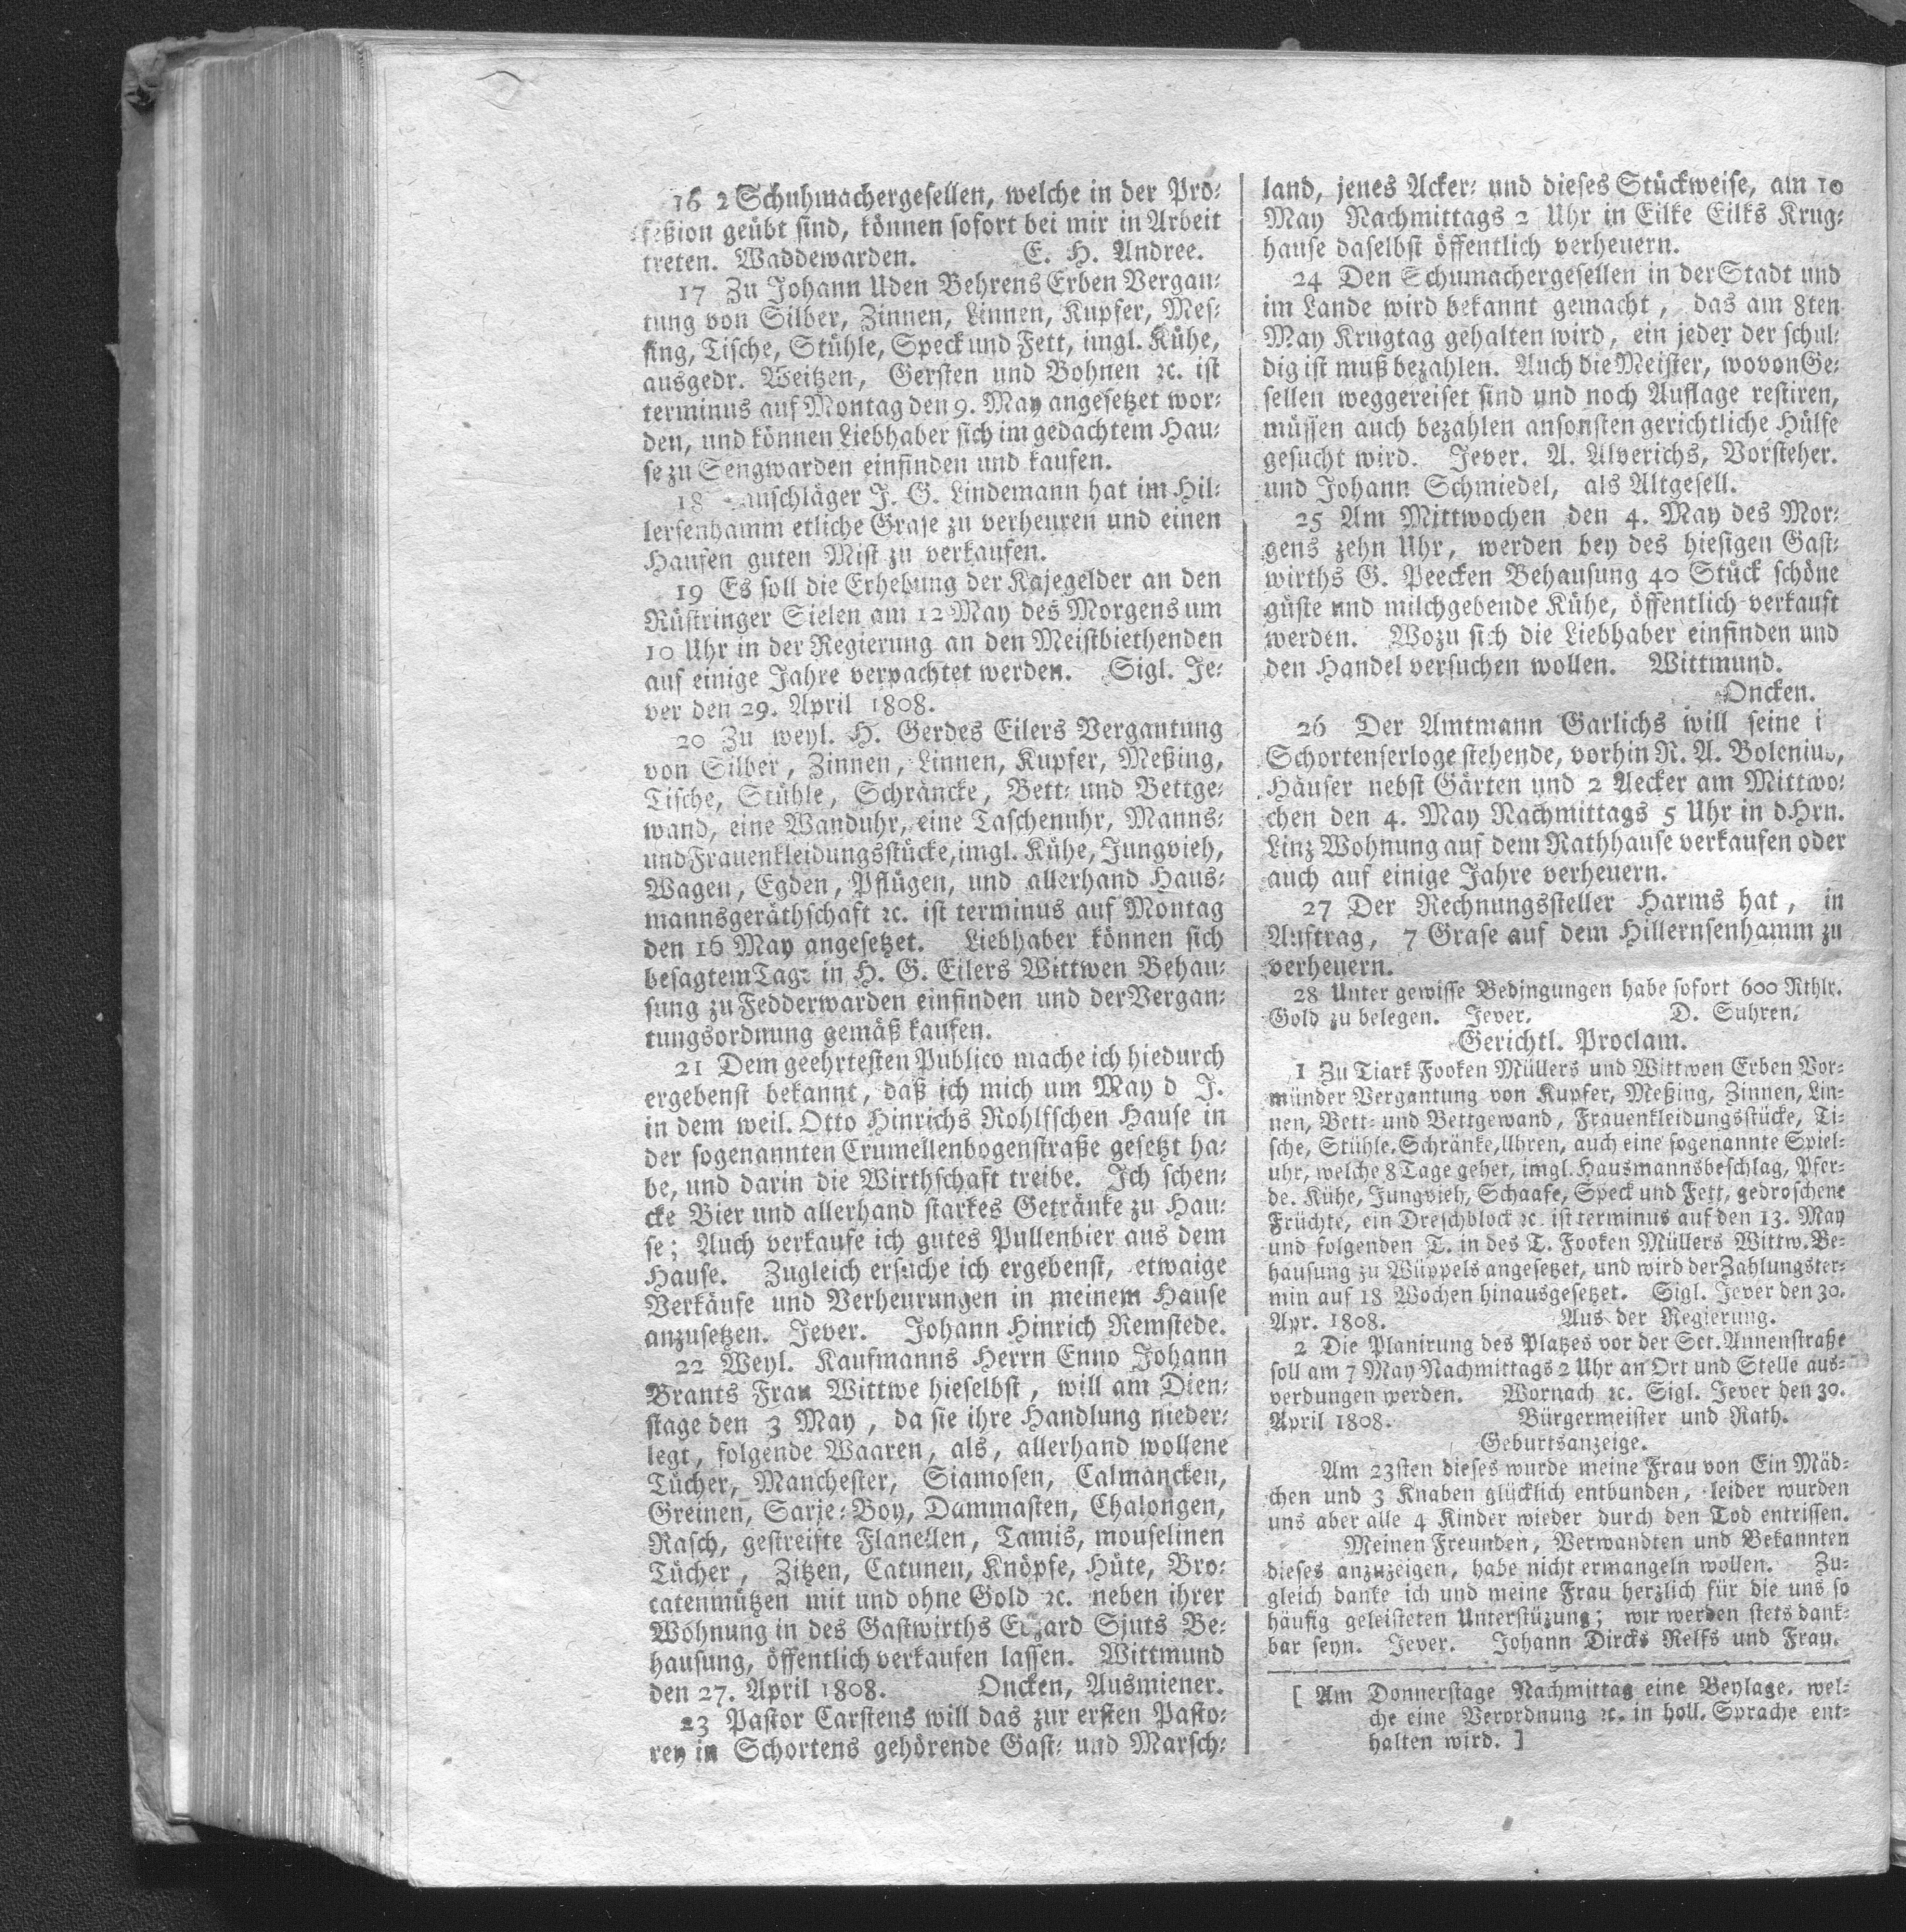 16 2 Schuhmachergesellen, welche in der Pro-
feßion geübt sind, können sofort bei mir in Arbeit
treten. Waddewarden. E. H. Andree.
17 Zu Johann Uden Behrens Erben Vergan-
tung von Silber, Zinnen, Linnen, Kupfer, Mes-
sing, Tische, Stühle, Speck und Fett, imgl. Kühe,
ausgedr. Weitzen, Gersten und Bohnen ꝛc. ist
terminus auf Montag den 9. May angesetzet wor-
den, und können Liebhaber sich im gedachtem Hau-
se zu Sengwarden einfinden und kaufen.
18 J. G. Lindemann hat im Hil-
lersenhamm etliche Grase zu verheuren und einen
Haufen guten Mist zu verkaufen.
19 Es soll die Erhebung der Kajegelder an den
Rüstringer Sielen am 12 May des Morgens um
10 Uhr in der Regierung an den Meistbiethenden
auf einige Jahre verpachtet werden. Sigl. Je-
ver den 29. April 1808.
20 Zu weyl. H. Gerdes Eilers Vergantung
von Silber, Zinnen, Linnen, Kupfer, Meßing,
Tische, Stühle, Schräncke, Bett- und Bettge-
wand, eine Wanduhr, eine Taschenuhr, Manns-
und Frauenkleidungsstücke, imgl. Kühe, Jungvieh,
Wagen, Egden, Pflügen, und allerhand Haus-
mannsgeräthschaft ꝛc. ist terminus auf Montag
den 16 May angesetzet. Liebhaber können sich
besagtem Tage in H. G. Eilers Wittwen Behau-
sung zu Fedderwarden einfinden und der Vergan-
tungsordnung gemäß kaufen.
21 Dem geehrtesten Publico mache ich hiedurch
ergebenst bekannt, daß ich mich um May d J.
in dem weil. Otto Hinrichs Rohlfschen Hause in
der sogenannten Crumellenbogenstraße gesetzt ha-
be, und darin die Wirthschaft treibe. Ich schen-
cke Bier und allerhand starkes Getränke zu Hau-
se; Auch verkaufe ich gutes Pullenbier aus dem
Hause. Zugleich ersuche ich ergebenst, etwaige
Verkäufe und Verheurungen in meinem Hause
anzusetzen. Jever. Johann Hinrich Remstede.
22 Weyl. Kaufmanns Herrn Enno Johann
Brants Frau Wittwe hieselbst, will am Dien-
stage den 3 May, da sie ihre Handlung nieder-
legt, folgende Waaren, als, allerhand wollene
Tücher, Manchester, Siamosen, Calmancken,
Greinen, Sarje-Boy, Dammasten, Chalongen,
Rasch, gestreifte Flanellen, Tamis, mouselinen
Tücher, Zitzen, Catunen, Knöpfe, Hüte, Bro-
catenmützen mit und ohne Gold ꝛc. neben ihrer
Wohnung in des Gastwirths Edzard Sjuts Be-
hausung, öffentlich verkaufen lassen. Wittmund
den 27. April 1808. Oncken, Ausmiener.
23 Pastor Carstens will das zur ersten Pasto-
rey in Schortens gehörende Gast- und Marsch-
land, jenes Acker- und dieses Stückweise, am 10
May Nachmittags 2 Uhr in Eilke Eilks Krug-
hause daselbst öffentlich verheuern.
24 Den Schumachergesellen in der Stadt und
im Lande wird bekannt gemacht, das am 8ten
May Krugtag gehalten wird, ein jeder der schul-
dig ist muß bezahlen. Auch die Meister, wovon Ge-
sellen weggereiset sind und noch Auflage restiren,
müssen auch bezahlen ansonsten gerichtliche Hülfe
gesucht wird. Jever. A. Alverichs, Vorsteher.
und Johann Schmiedel, als Altgesell.
25 Am Mittwochen den 4. May des Mor-
gens zehn Uhr, werden bey des hiesigen Gast-
wirths G. Peecken Behausung 40 Stück schöne
güste und milchgebende Kühe, öffentlich verkauft
werden. Wozu sich die Liebhaber einfinden und
den Handel versuchen wollen. Wittmund.
Oncken.
26 Der Amtmann Garlichs will seine
Schortenserloge stehende, vorhin R. A. Bolenius,
Häuser nebst Gärten und 2 Aecker am Mittwo-
chen den 4. May Nachmittags 5 Uhr in d. Hrn.
Linz Wohnung auf dem Rathhause verkaufen oder
auch auf einige Jahre verheuern.
27 Der Rechnungssteller Harms hat, in
Auftrag, 7 Grase auf dem Hillernsenhamm zu
verheuern.
28 Unter gewisse Bedingungen habe sofort 600 Rthlr.
Gold zu belegen. Jever. D. Suhren.
Gerichtl. Proclam.
1 Zu Tiark Fooken Müllers und Wittwen Erben Vor-
münder Vergantung von Kupfer, Meßing, Zinnen, Lin-
nen, Bett- und Bettgewand, Frauenkleidungsstücke, Ti-
sche, Stühle, Schränke, Uhren, auch eine sogenannte Spiel-
uhr, welche 8 Tage gehet, imgl. Hausmannsbeschlag, Pfer-
de. Kühe, Jungvieh, Schaafe, Speck und Fett, gedroschene
Früchte, ein Dreschblock ꝛc. ist terminus auf den 13. May
und folgenden T. in des T. Fooken Müllers Wittw. Be-
hausung zu Wüppels angesetzet, und wird der Zahlungster-
min auf 18 Wochen hinausgesetzet. Sigl. Jever den 30.
Apr. 1808. Aus der Regierung.
2 Die Planirung des Platzes vor der Sct. Annenstraße
soll am 7 May Nachmittags 2 Uhr an Ort und Stelle aus-
verdungen werden. Wornach ꝛc. Sigl. Jever den 30.
April 1808. Bürgermeister und Rath.
Geburtsanzeige.
Am 23sten dieses wurde meine Frau von Ein Mäd-
chen und 3 Knaben glücklich entbunden, leider wurden
uns aber alle 4 Kinder wieder durch den Tod entrissen.
Meinen Freunden, Verwandten und Bekannten
dieses anzuzeigen, habe nicht ermangeln wollen. Zu-
gleich danke ich und meine Frau herzlich für die uns so
häufig geleisteten Unterstüzung; wir werden stets dank-
bar seyn. Jever. Johann Dircks Relfs und Frau.
[ Am Donnerstage Nachmittag eine Beylage, wel-
che eine Verordnung ꝛc. in holl. Sprache ent-
halten wird. ]